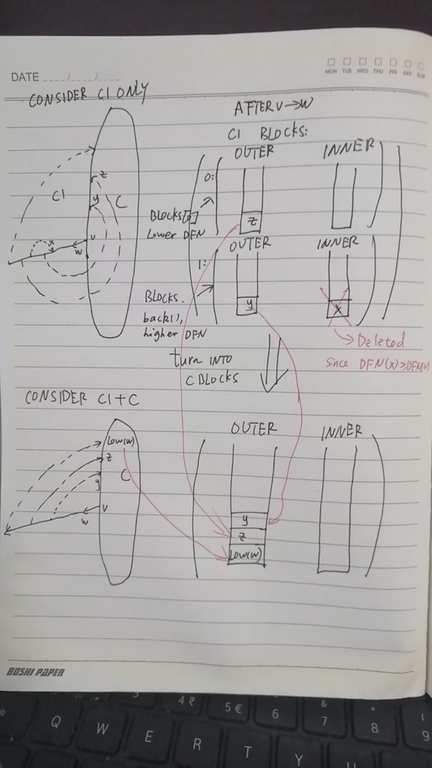 DATE ____/____/____
MON TUE WED THU FRI SAT SUN
CONSIDER C1 ONLY
AFTER V→W
C1 BLOCKS:
OUTER INNER
0:
C1
z
y
C
x
v
w
Blocks[0]
Lower DFN
z
OUTER INNER
1:
Blocks.
back(),
higher DFN
y
x
→ Deleted
since DFN(x) ≥ DFN(v)
turn INTO
C BLOCKS
CONSIDER C1+C
OUTER INNER
low(w)
z
y
C
v
w
y
z
low(w)
ROSHI PAPER
4 ₹ 5 € 6 7 8 9
Q W E R T Y